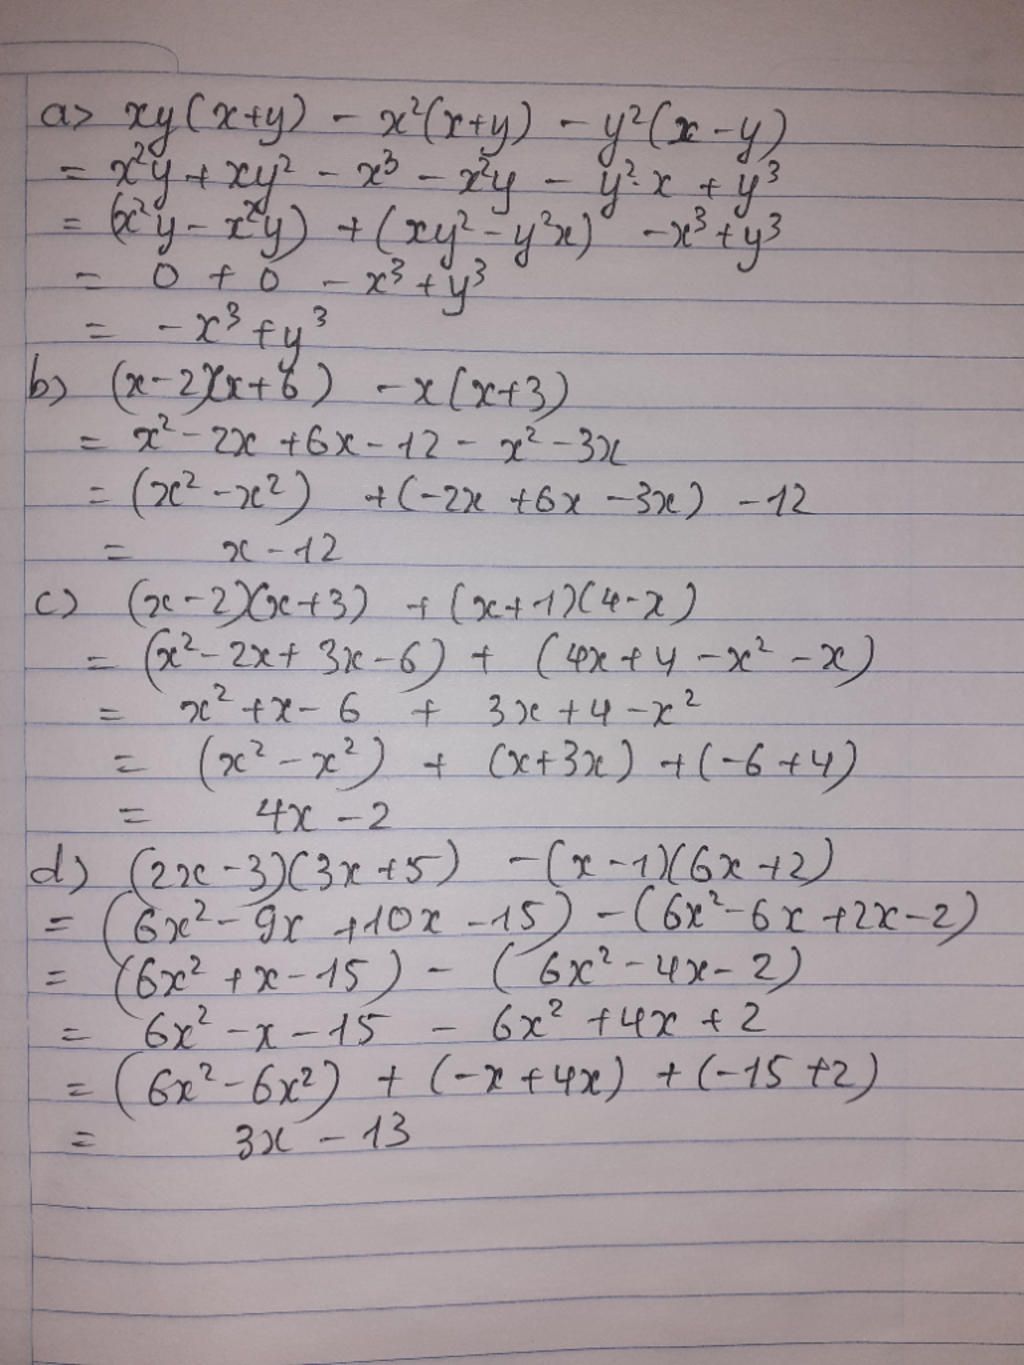 a> xy(x+y) - x²(x+y) - y²(x-y)
= x²y + xy² - x³ - x²y - y².x + y³
= (x²y - x²y) + (xy² - y²x) - x³ + y³
= 0 + 0 - x³ + y³
= -x³ + y³
b) (x-2)(x+6) - x(x+3)
= x² - 2x + 6x - 12 - x² - 3x
= (x² - x²) + (-2x + 6x - 3x) - 12
= x - 12
c) (x-2)(x+3) + (x+1)(4-x)
= (x² - 2x + 3x - 6) + (4x + 4 - x² - x)
= x² + x - 6 + 3x + 4 - x²
= (x² - x²) + (x+3x) + (-6+4)
= 4x - 2
d) (2x-3)(3x+5) - (x-1)(6x+2)
= (6x² - 9x + 10x - 15) - (6x² - 6x + 2x - 2)
= (6x² + x - 15) - (6x² - 4x - 2)
= 6x² - x - 15 - 6x² + 4x + 2
= (6x² - 6x²) + (-x + 4x) + (-15 + 2)
= 3x - 13